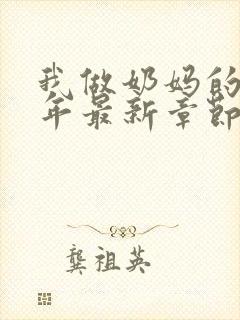 我做奶妈的
年最新章节
龚祖英